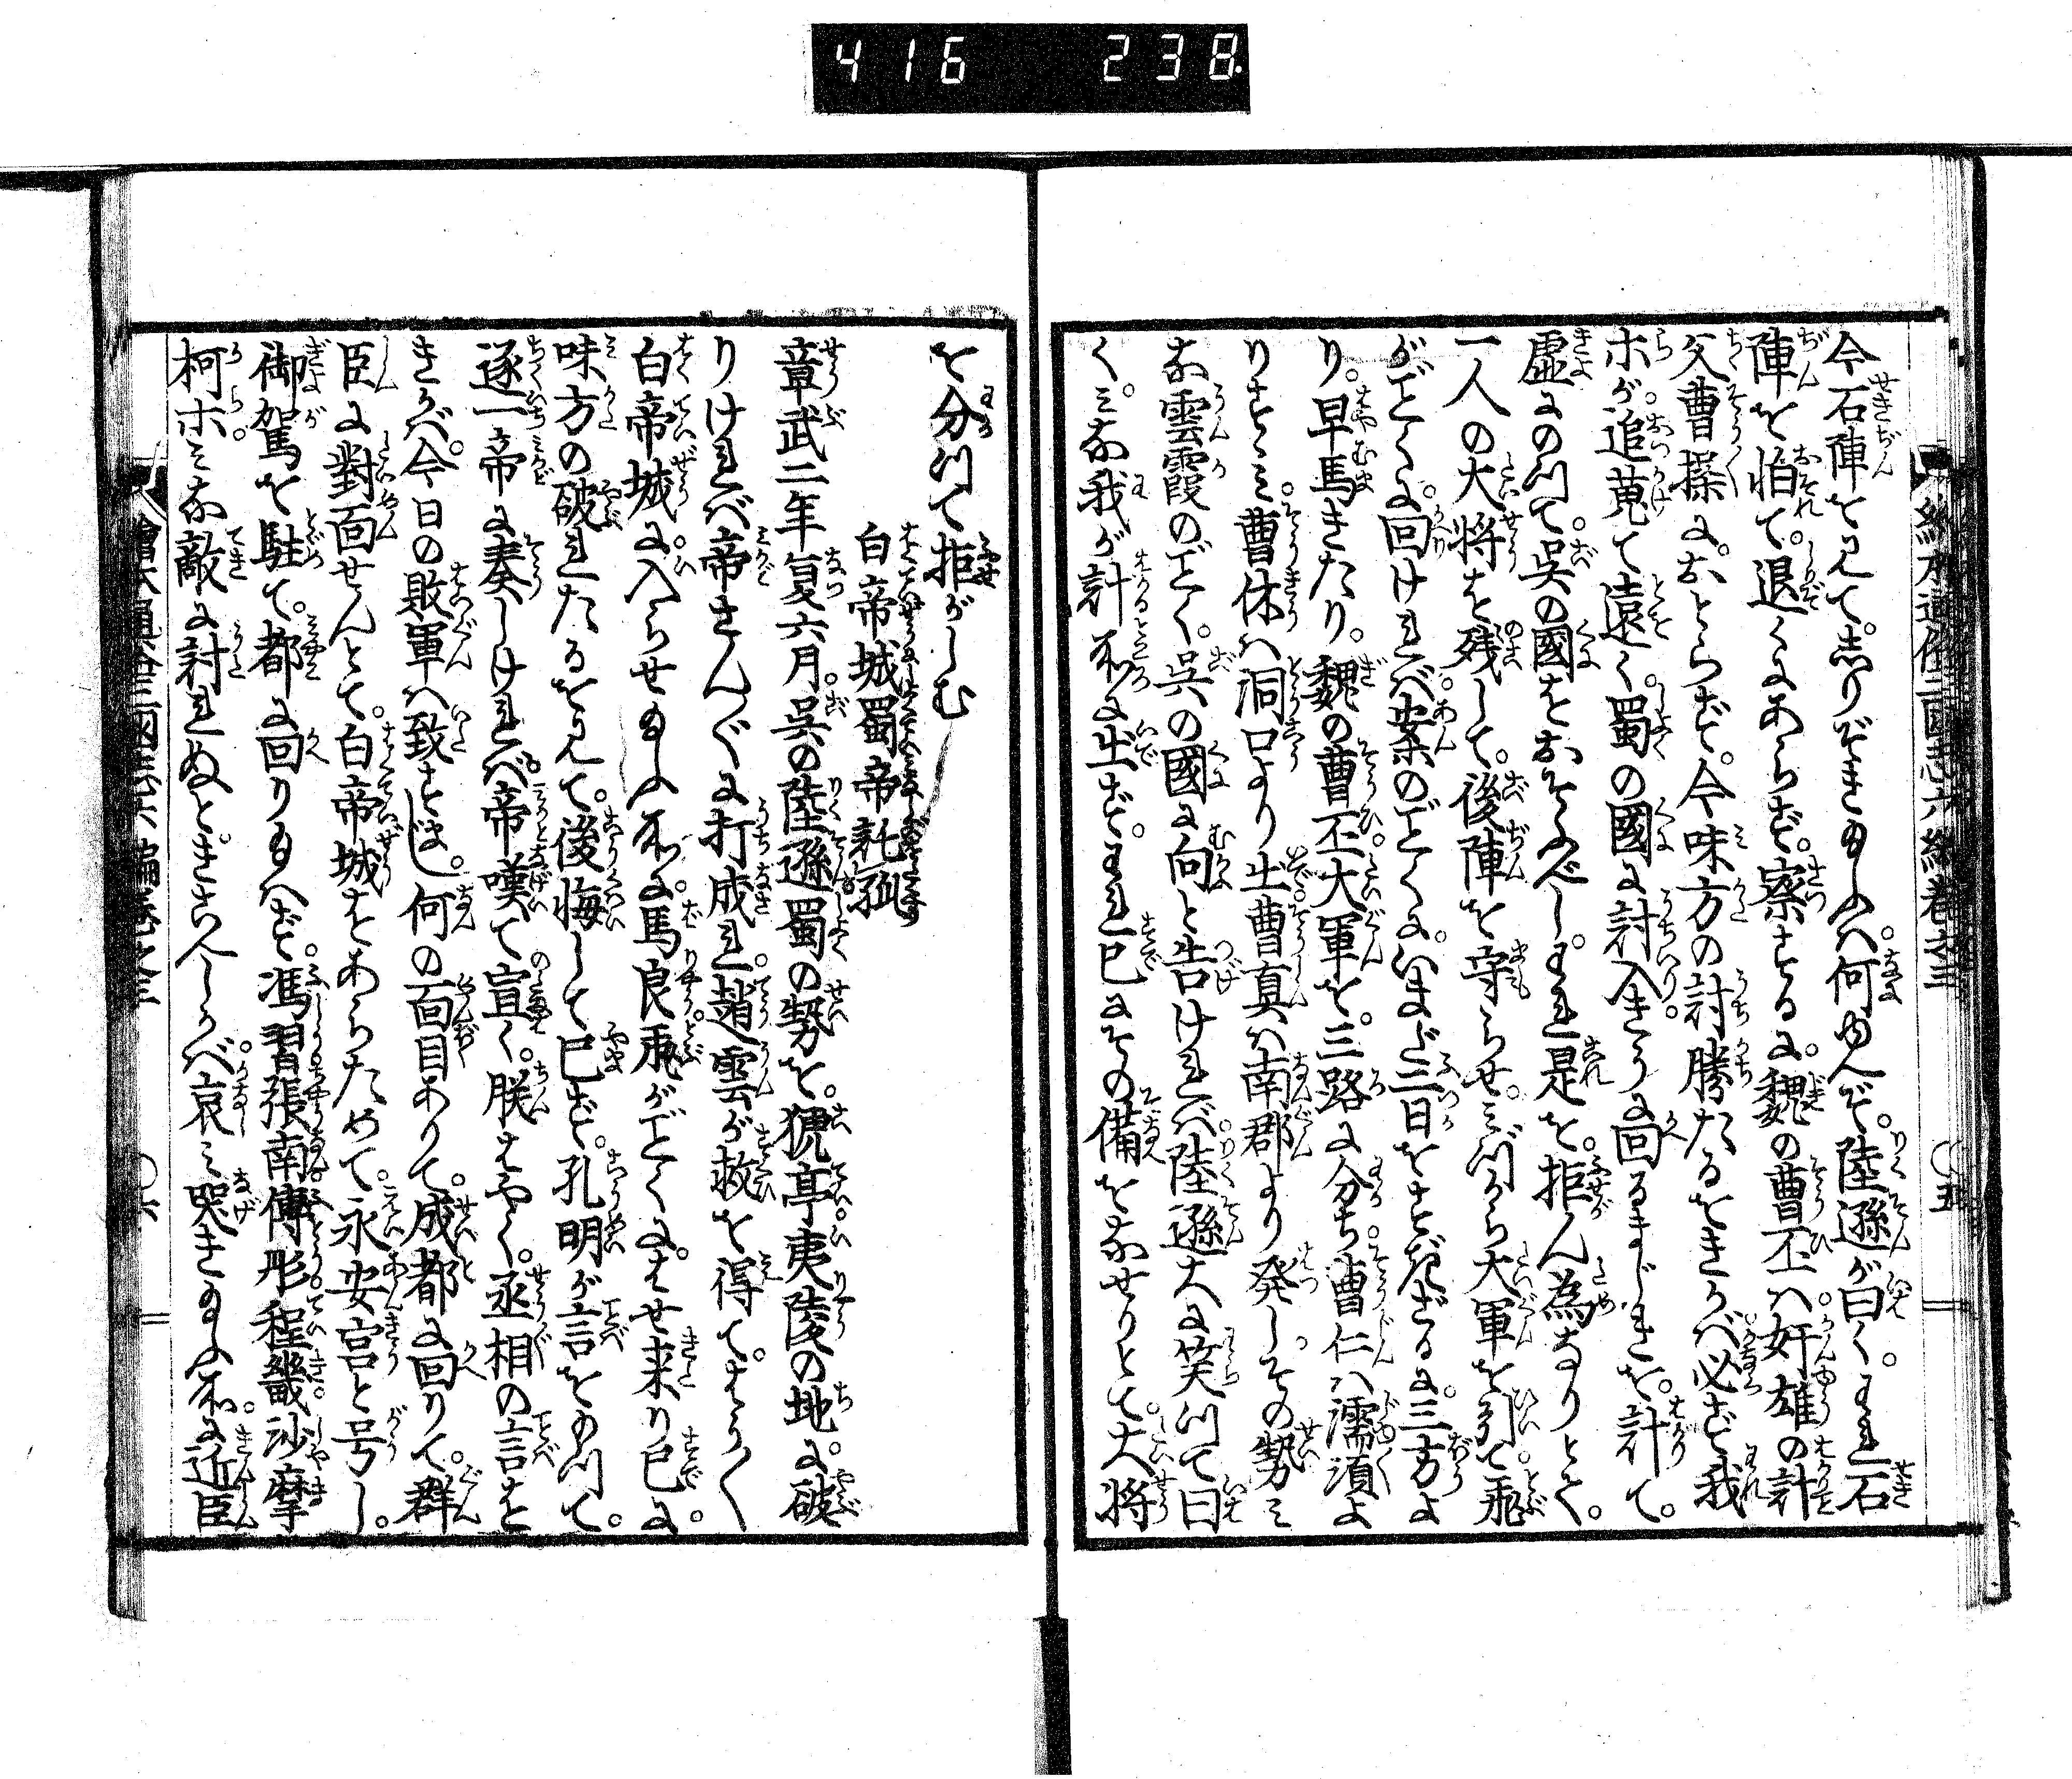 416 238
今石陣を見て。志りぞきゆふハ何ゆへぞ。陸遜が曰く。われ石
陣を怕て。退くにあらず。察するに。魏の曹丕ハ。奸雄の計
父曹操に。おとらず。今味方の討勝たるをきかバ必ず我
ホが。追蒐て遠く。蜀の國に討入。きうに回るまじきを。計て。
虚にのつて。呉の國をおそふべし。われ是を。拒ん為なりとて。
一人の大将を残して。後陣を守らせ。ミづから大軍を引て。飛
がごとくに。回けれバ。案のごとくに。いまだ三日をすぎざるに。三方よ
り。早馬きたり。魏の曹丕。大軍を。三路に分ち。曹仁ハ濡須よ
りすゝミ。曹休ハ洞口より出。曹真ハ南郡より発し。その勢ミ
な雲霞のごとく。呉の國に向と告けれバ。陸遜大に笑つて曰
く。ミな我が計所に出ず。われ已にその備をなせりとて。大将
を分つて拒がしむ
白帝城蜀帝託孤
章武二年夏六月。呉の陸遜。蜀の勢を。猇亭。夷陵の地に。破
りけれバ。帝さんぐに打成れ。趙雲が救を得て。はうく
白帝城に。入らせゆふ所に。馬良。飛がごとくに。はせ来り已に。
味方の破れたるを見て。後悔して已ず。孔明が言をもつて。
逐一帝に奏しけれバ。帝嘆て宣く。朕はやく。丞相の言を
きかバ。今日の敗軍ハ致さじ。何の面目ありて。成都に回りて。群
臣に對面せんとて。白帝城をあらためて。永安宮と号し。
御駕を駐て。都に回りゆハず。馮習。張南。傅彤。程畿。沙摩
柯ホ。ミな敵に討れぬと。きこへしかバ。哀ミ哭きゆふ所に。近臣